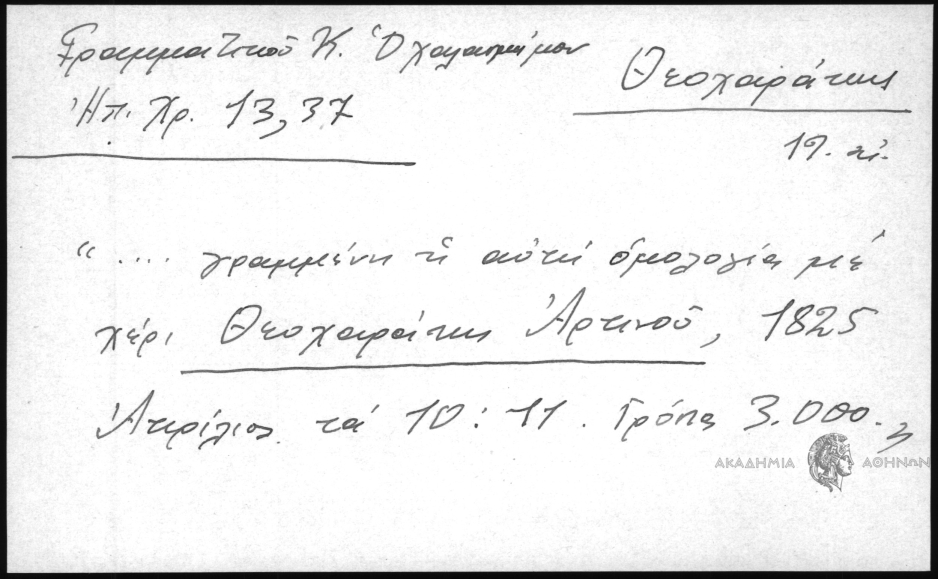 Γραμματικού Κ. Ὁ χαλασμένον
Ἠπ. Χρ. 13, 37
Θεοχαράκης
19. αἰ.
“ .... γραμμένη ἡ αὐτή ὁμολογία μέ
χέρι Θεοχαράκης Ἀρτινοῦ, 1825
Ἀπρίλιος τά 10 : 11 . Γρόπα 3.000. "
ΑΚΑΔΗΜΙΑ ΑΘΗΝΩΝ